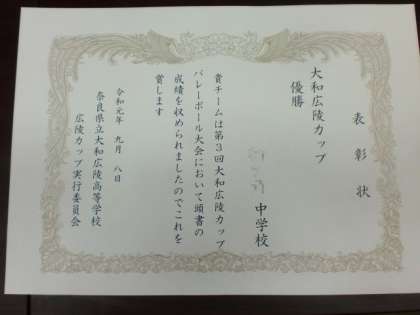 表彰状
大和広陵カップ
優勝
中学校
貴チームは第3回大和広陵カップ
バレーボール大会において頭書の
成績を収められましたのでこれを
賞します
令和元年 九月 八日
奈良県立大和広陵高等学校
広陵カップ実行委員会